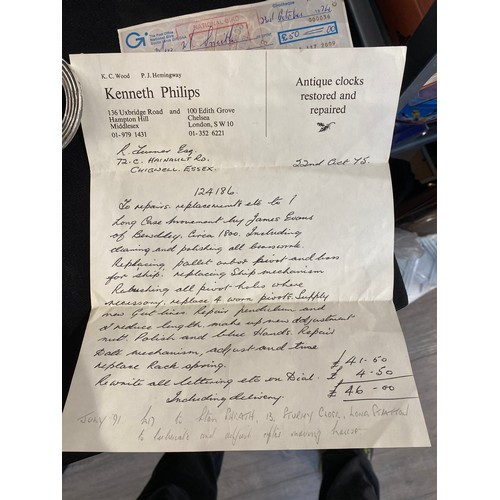 K. C. Wood P. J. Hemingway
Kenneth Philips
136 Uxbridge Road and 100 Edith Grove
Hampton Hill Chelsea
Middlesex London, S W 10
01-979 1431 01-352 6221
Antique clocks
restored and
repaired
R. Turner Esq.
72. C. Hainault Rd.
Chigwell Essex.
22nd Oct 75.
124186.
To repairs replacements etc to 1
Long Case movement by James Evans
of Bewdley. Circa 1800. Including
cleaning and polishing all brasswork.
Replacing pallet arbor pivot and boss
for 'ship'. replacing Ship mechanism
Rebushing all pivot holes where
necessary. replace 4 worn pivots. Supply
new Gut lines. Repair pendulum and
reduce length. make up new adjustment
nut. Polish and blue Hands. Repair
Date mechanism, adjust and tune
replace Rack spring. £ 41-50
Rewrite all lettering etc on Dial. £ 4.50
Including delivery. £ 46-00
to Stan
to lubricate and adjust after moving house.
£50 00